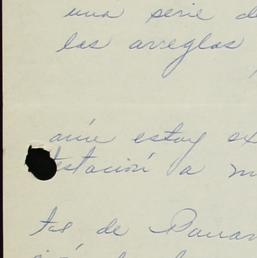 una serie d
los arreglos
aún estoy ex
testación a m
tal de Panam